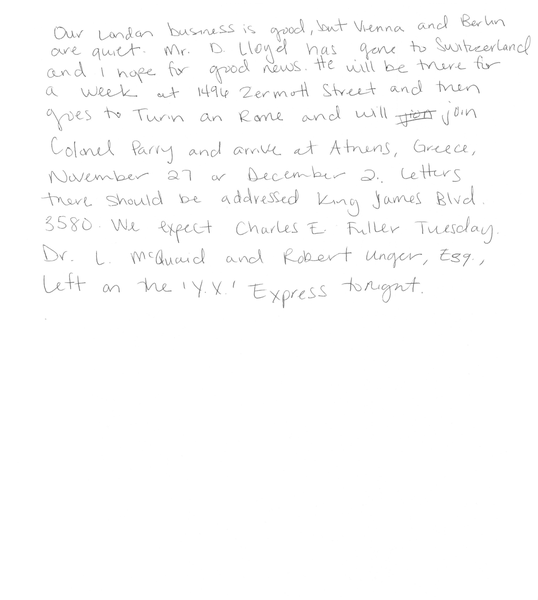 Our London business is good, but Vienna and Berlin
are quiet. Mr. D. Lloyd has gone to Switzerland
and I hope for good news. He will be there for
a week at 1496 Zermott Street and then
goes to Turin an Rome and will join
Colonel Parry and arrive at Athens, Greece,
November 27 or December 2. Letters
there should be addressed King James Blvd.
3580. We expect Charles E. Fuller Tuesday.
Dr. L. McQuaid and Robert Unger, Esq.,
Left on the 'Y.X.' Express tonight.